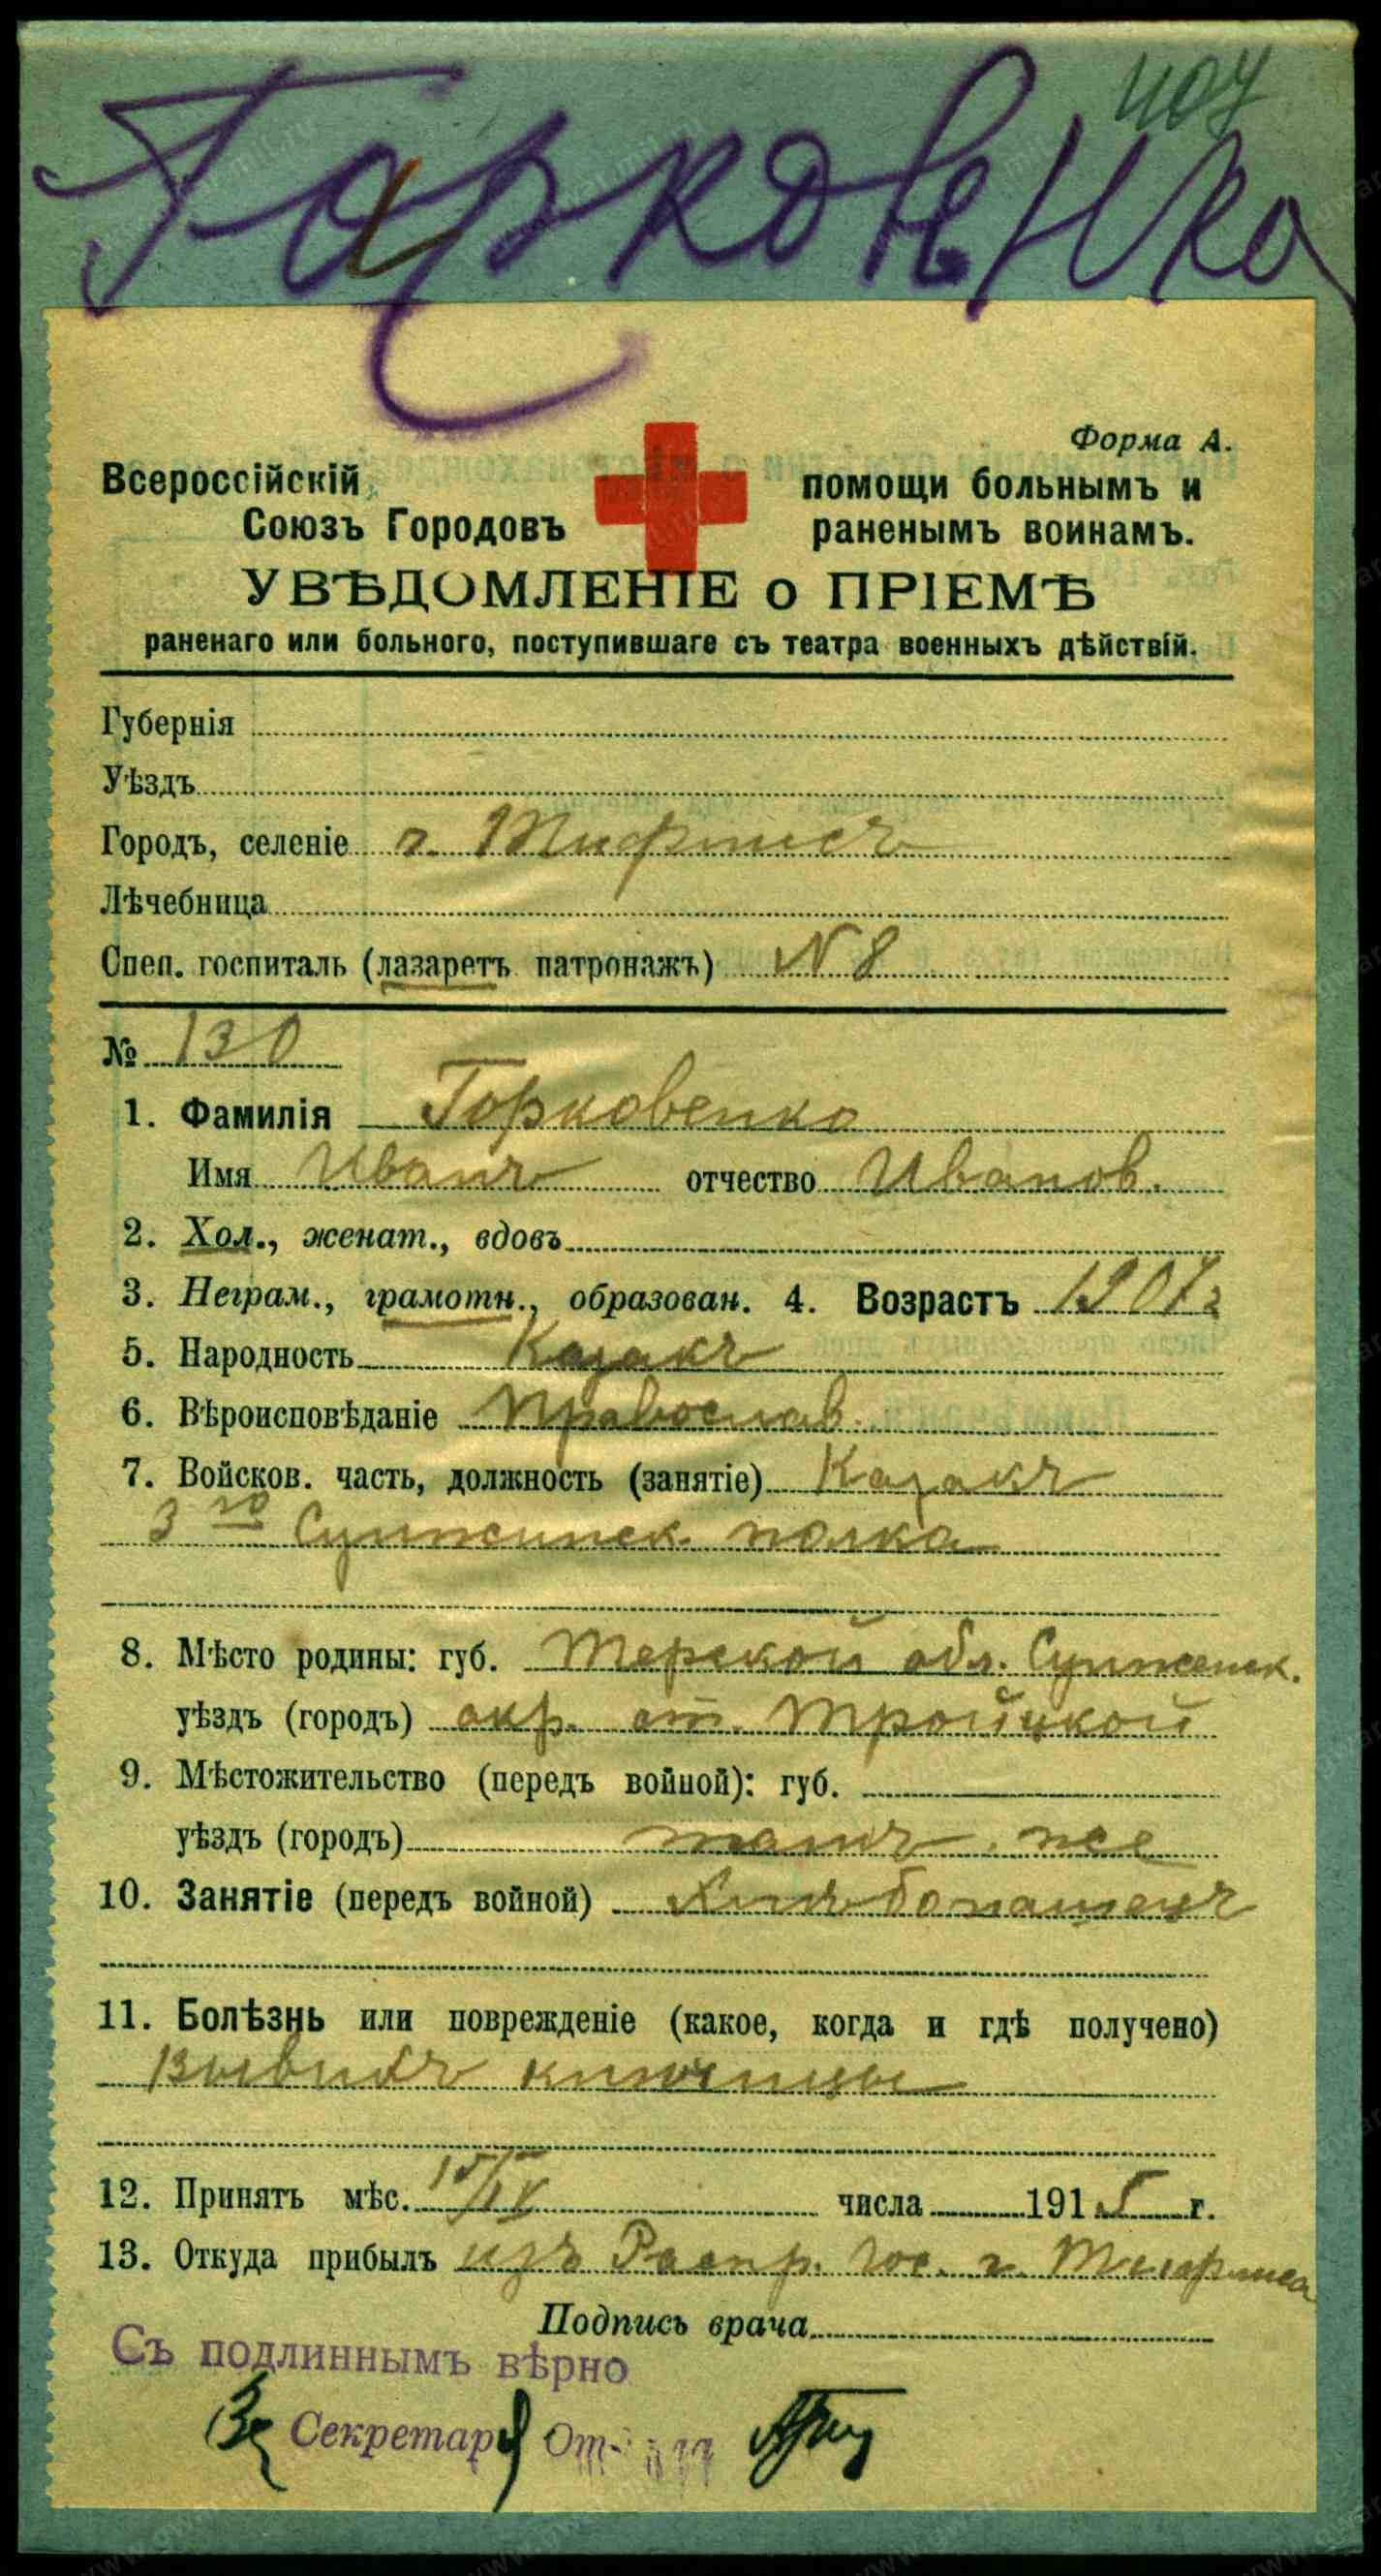 407
Гарковенко
Форма А.
Всероссійскій помощи больнымъ и
Союзъ Городовъ раненымъ воинамъ.
УВѢДОМЛЕНІЕ о ПРІЕМѢ
раненаго или больного, поступившаге съ театра военныхъ дѣйствій.
Губернія
Уѣздъ
Городъ, селеніе г. Тифлисъ
Лѣчебница
Спец. госпиталь (лазаретъ патронажъ) N 8
№ 130
1. Фамилія Горковенко
Имя Иванъ отчество Иванов.
2. Хол., женат., вдовъ
3. Неграм., грамотн., образован. 4. Возрастъ 1907г
5. Народность Казакъ
6. Вѣроисповѣданіе Православ.
7. Войсков. часть, должность (занятіе) Казакъ
3го Сунженск. полка
8. Мѣсто родины: губ. Терской обл. Сунженск.
уѣздъ (городъ) окр. ст. Тройцкой
9. Мѣстожительство (передъ войной): губ.
уѣздъ (городъ) тамъ же
10. Занятіе (передъ войной) Хлѣбопашецъ
11. Болѣзнь или поврежденіе (какое, когда и гдѣ получено)
Вывихъ ключицы
12. Принятъ мѣс. 15/IV числа 1915 г.
13. Откуда прибылъ изъ Распр. гос. г. Тифлиса
Подпись врача
Съ подлиннымъ вѣрно
За Секретаря